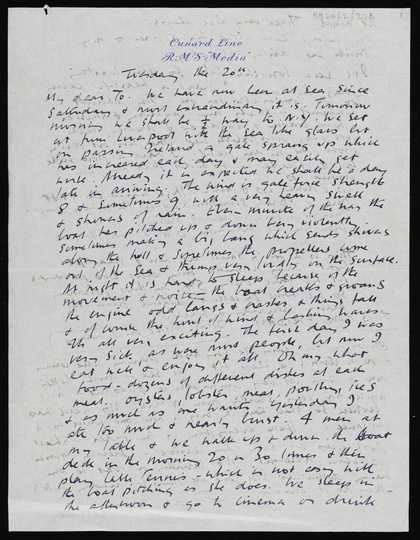 Cunard Line
R.M.S. "Media"
Tuesday the 20th.
My dear To. We have now been at Sea since
Saturday & most extraordinary it is. Tomorrow
morning we shall be ½ way to N.Y. We set
out from Liverpool with the sea like glass but
on passing Ireland a gale sprang up which
has increased each day & may easily get
worse. Already it is expected we shall be a day
late in arriving. The wind is gale force strength
8 & sometimes 9 with a very heavy swell
& showers of rain. Every minute of the day the
boat has pitched up & down very violently
Sometimes making a big bang which sends shivers
along the hull & sometimes the propellers come
out of the sea & thump very loudly on the surface.
At night it is hard to sleep because of the
movement & noise the boat creaks & groans
the engine odd bangs & crashes & things fall
& of course the howl of wind & lashing waves
Its all very exciting. The first day I was
very sick, as were most people, but now I
eat well & enjoy it all. Oh my what
food - dozens of different dishes at each
meal. oysters, lobster, meat, poultry, ices
& as much as one wants. Yesterday I
ate too much & nearly burst. 4 men at
my table & we walk up & down the boat
deck in the morning 20 or 30 times & then
play table tennis - which is not easy with
the boat pitching as she does. We sleep in
the afternoon & go to cinema or drink